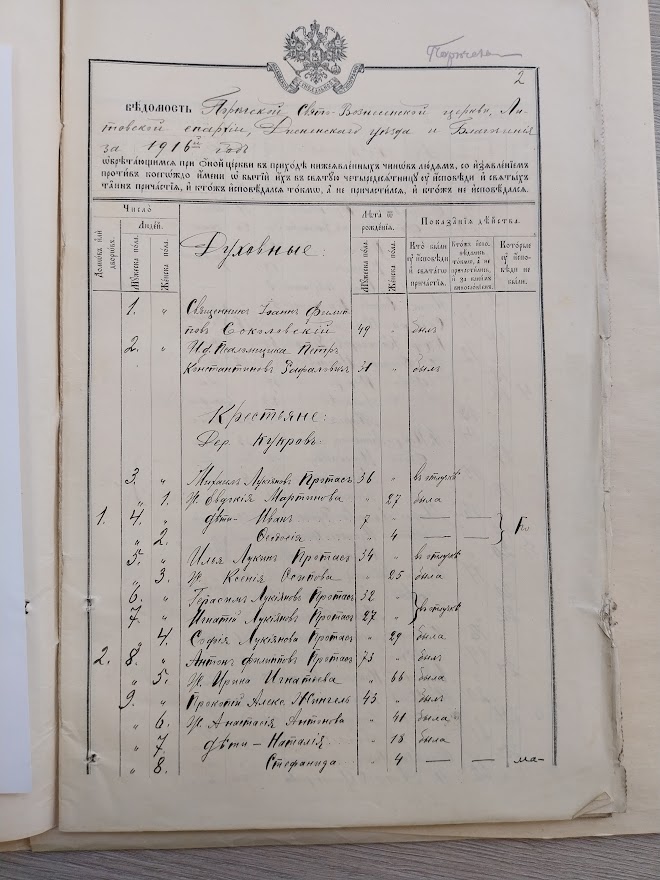 2
ВѢДОМОСТЬ Свято-Вознесенской церкви, Ли-
товской епархіи, Дисненскаго уѣзда и Благочинія
за 1916й годъ
ѡбрѣтающимся при ѻной церкви въ приходѣ нижеявленныхъ чиновъ людямъ, со изъявленіемъ
противъ коегождо имени ѡ бытіи ихъ въ святую четыредесятницу ѹ исповѣди и святыхъ
таинъ причастія, и ктожъ исповѣдался токмо, а не причастился, и ктожъ не исповѣдался.
Число
Домовъ или дворовъ.
Людей.
Мужеска пола.
Женска пола.
Духовные:
Лѣта ѿ рожденія.
Мужеска пола.
Женска пола.
Показанія дѣйства.
Кто были ѹ исповѣди и святаго причастія.
Ктожъ исповѣдались токмо, а не причастились, и за какимъ винословіемъ.
Которые ѹ исповѣди не были.
1. " Священникъ Іоаннъ Филип-
повъ Соколовскій 49 " былъ
2. " И.д. Псаломщика Петръ
Константиновъ 31 " былъ
Крестьяне:
Дер. Кукровъ
3. " Михаилъ Лукіяновъ Протасъ 36 " въ отпускѣ
" 1. Ж. Евдокія Мартинова " 27 была
1. 4. " дѣти - Иванъ 7 " — —
" 2. Феодосія " 4 — —
5. " Илья Лукинъ Протасъ 34 " въ отпускѣ
" 3. Ж. Ксенія Осипова " 25 была
6. " Герасимъ Лукіяновъ Протасъ 32 "
7. " Игнатій Лукіяновъ Протасъ 27 " въ отпускѣ
" 4. Софія Лукіянова Протасъ " 29 была
2. 8. " Антонъ Филиповъ Протасъ 73 " былъ
" 5. Ж. Ирина Игнатьева " 66 была
9. " Прокопій Алекс. Жингель 43 " былъ
" 6. Ж. Анастасія Антонова " 41 была
" 7. дѣти - Наталія " 18 была
" 8. Стефанида " 4 — — ма-